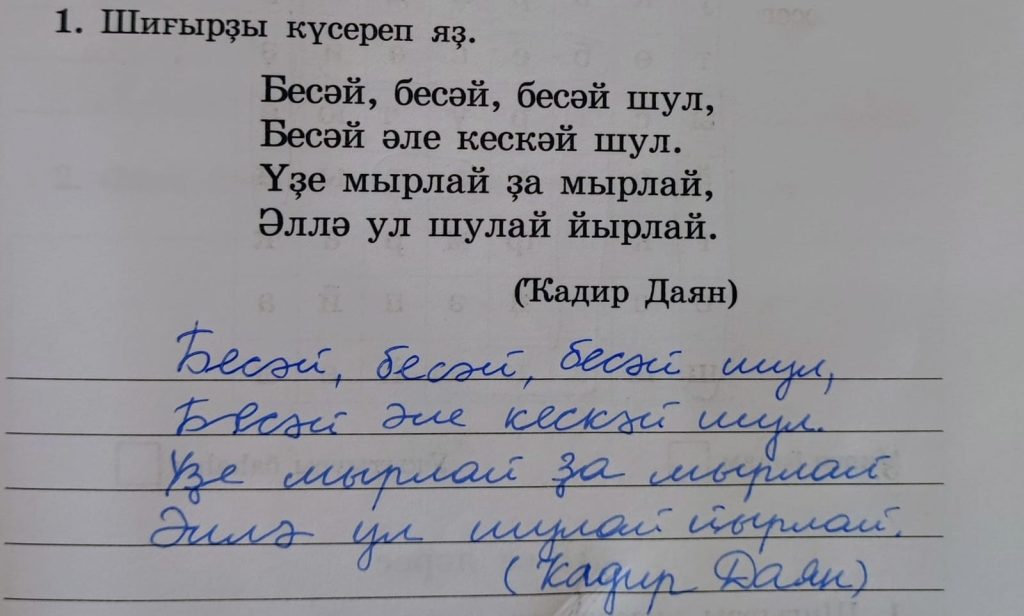 1. Шиғырҙы күсереп яҙ.
Бесәй, бесәй, бесәй шул,
Бесәй әле кескәй шул.
Үҙе мырлай ҙа мырлай,
Әллә ул шулай йырлай.
(Ҡадир Даян)
Бесәй, бесәй, бесәй шул,
Бесәй әле кескәй шул.
Үҙе мырлай ҙа мырлай
Әллә ул шулай йырлай.
(Ҡадир Даян)